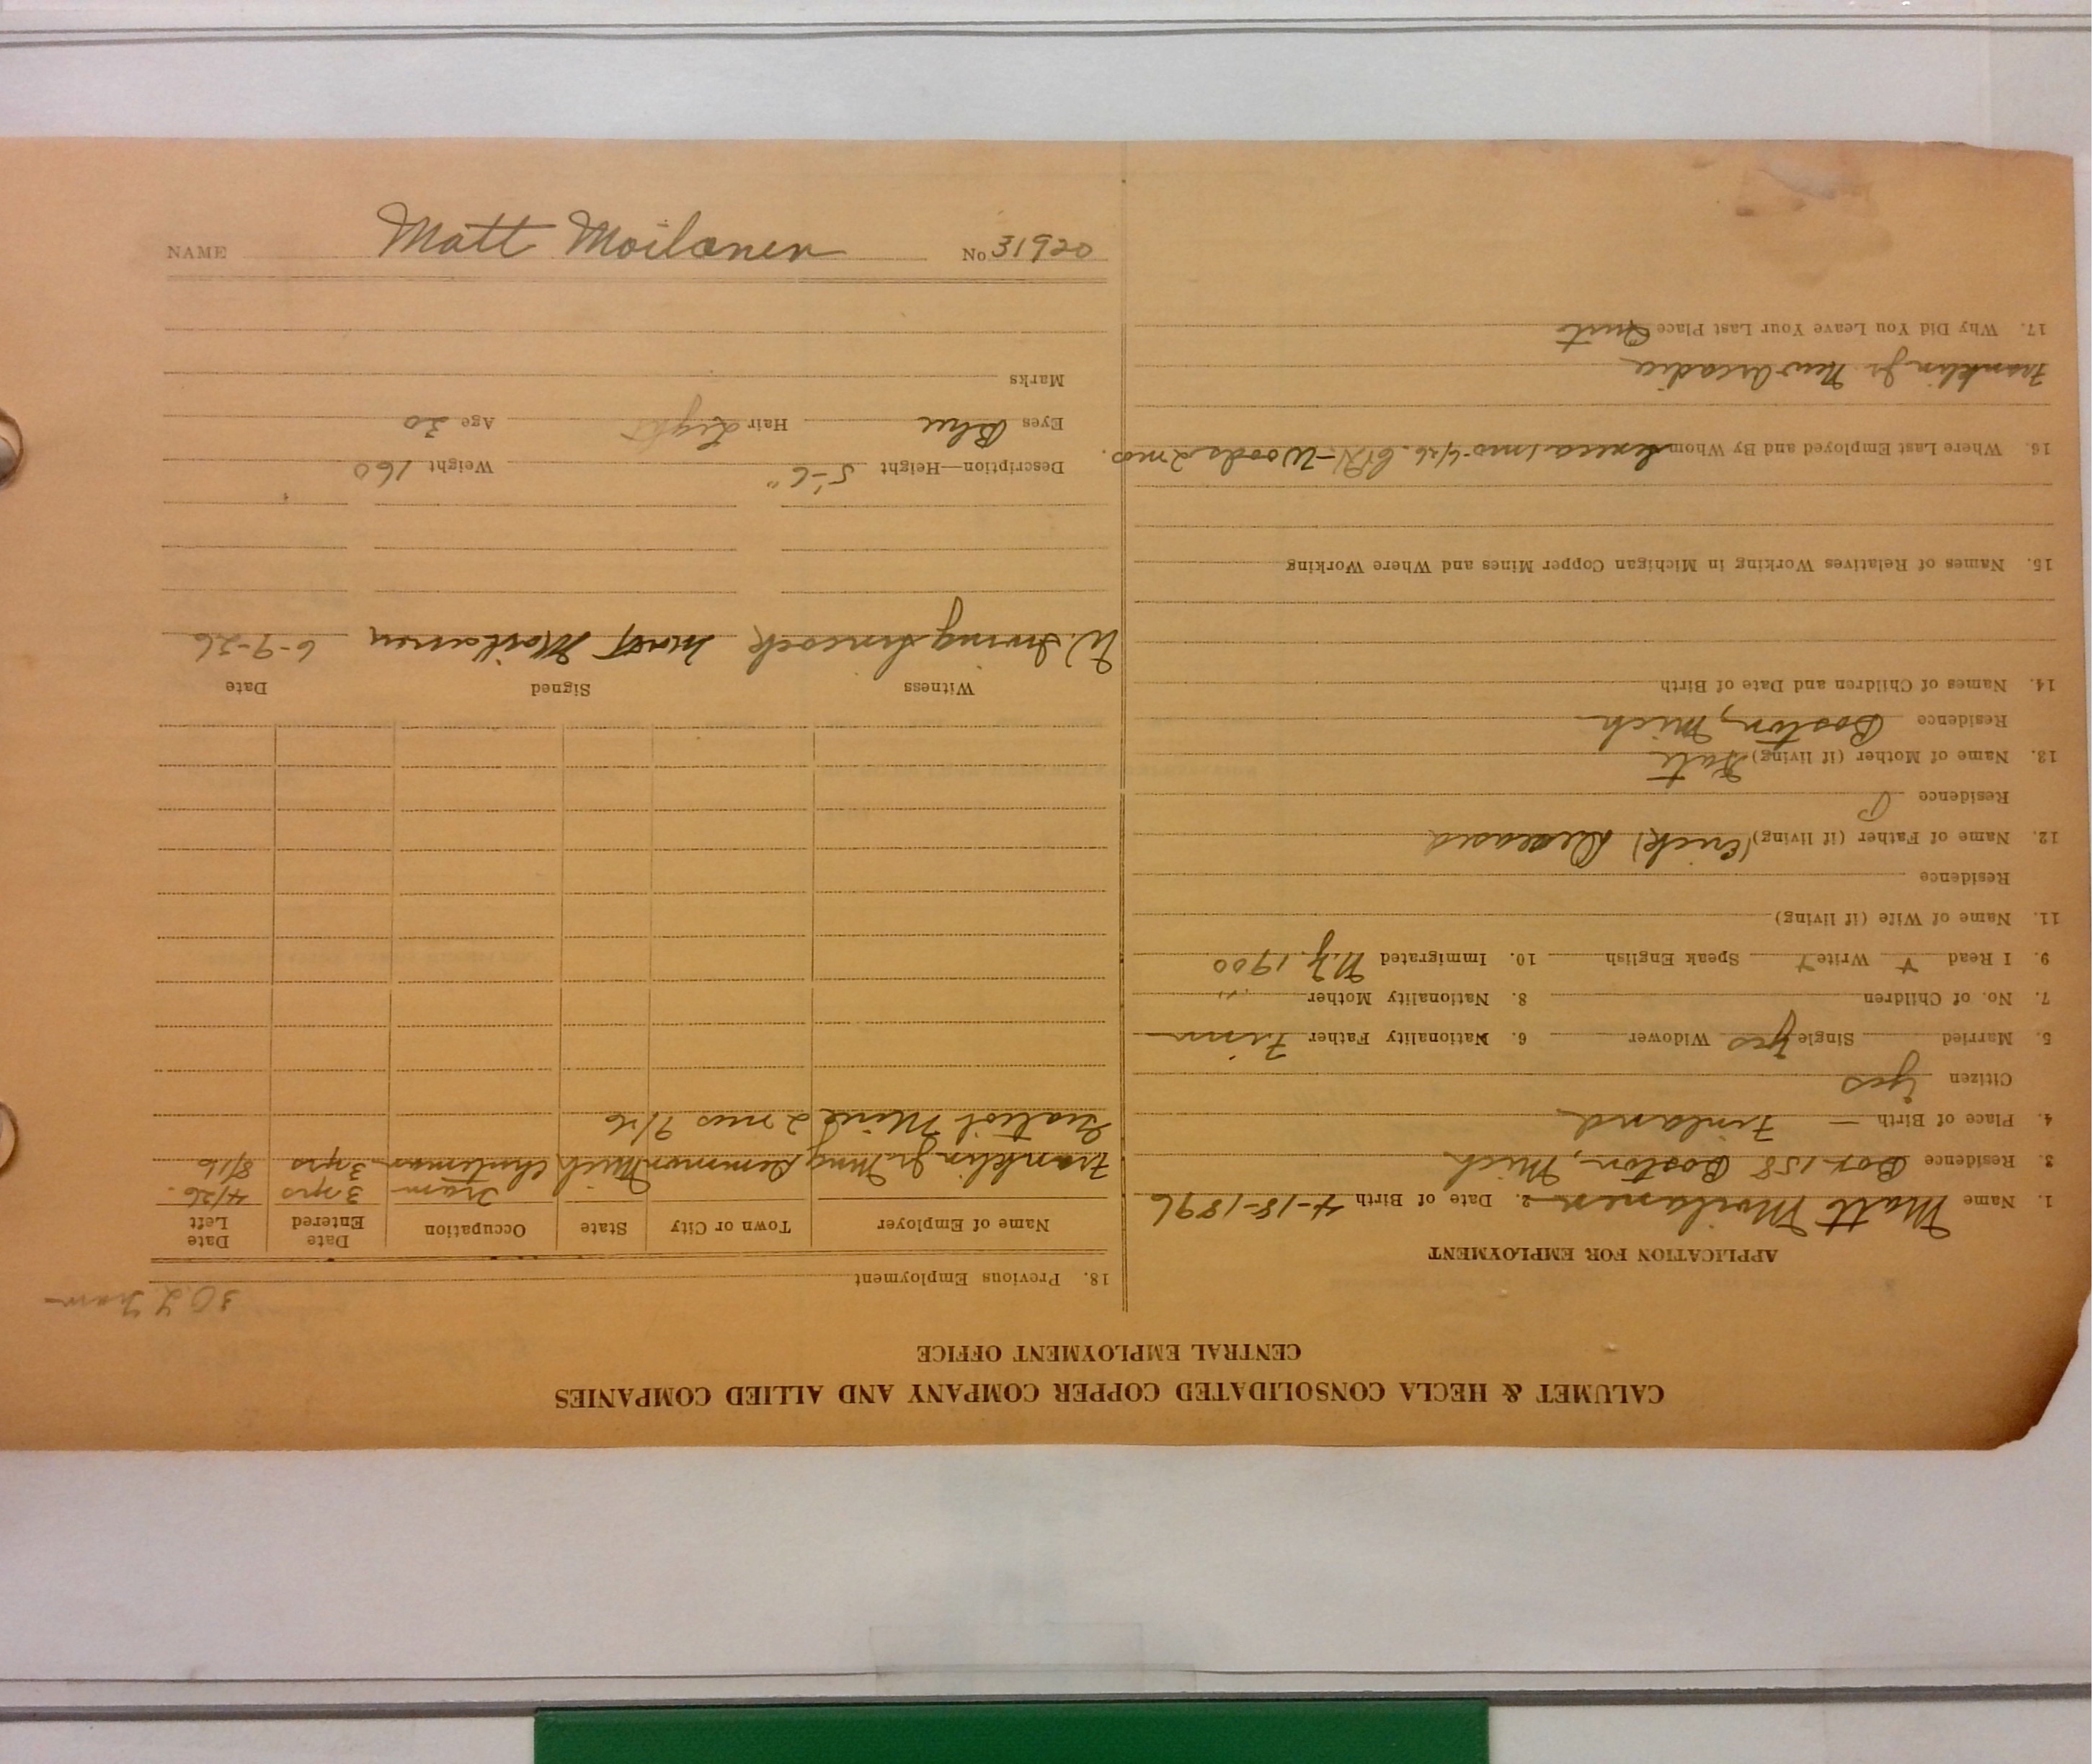 NAME Matt Moilanen No 31920
CALUMET & HECLA CONSOLIDATED COPPER COMPANY AND ALLIED COMPANIES
CENTRAL EMPLOYMENT OFFICE
APPLICATION FOR EMPLOYMENT
1. Name Matt Moilanen 2. Date of Birth 4-18-1896
3. Residence Box 158 Boston, Mich
4. Place of Birth — Finland
Citizen yes
5. Married Single yes Widower 6. Nationality Father Finn
7. No. of Children 8. Nationality Mother "
9. I Read + Write + Speak English 10. Immigrated N.Y. 1900
11. Name of Wife (if living)
Residence
12. Name of Father (if living) (Erick) Deceased
Residence
13. Name of Mother (if living) Kate
Residence Boston, Mich
14. Names of Children and Date of Birth
15. Names of Relatives Working in Michigan Copper Mines and Where Working
16. Where Last Employed and By Whom Seneca 1 mo - 4/26. Woods 2 mos.
Franklin Jr. New Arcadia
17. Why Did You Leave Your Last Place Quit
30 L Tram
18. Previous Employment
Name of Employer Town or City State Occupation Date Entered Date Left
Tram 3 yrs 4/26.
Franklin Jr. Mng Demmon Mich Chuteman 3 yrs 8/16
Gratiot Mine 2 mos 9/16
Witness Signed Date
W. Irving Simcock Matt Moilanen 6-9-26
Description—Height 5'-6" Weight 160
Eyes Blue Hair Light Age 30
Marks